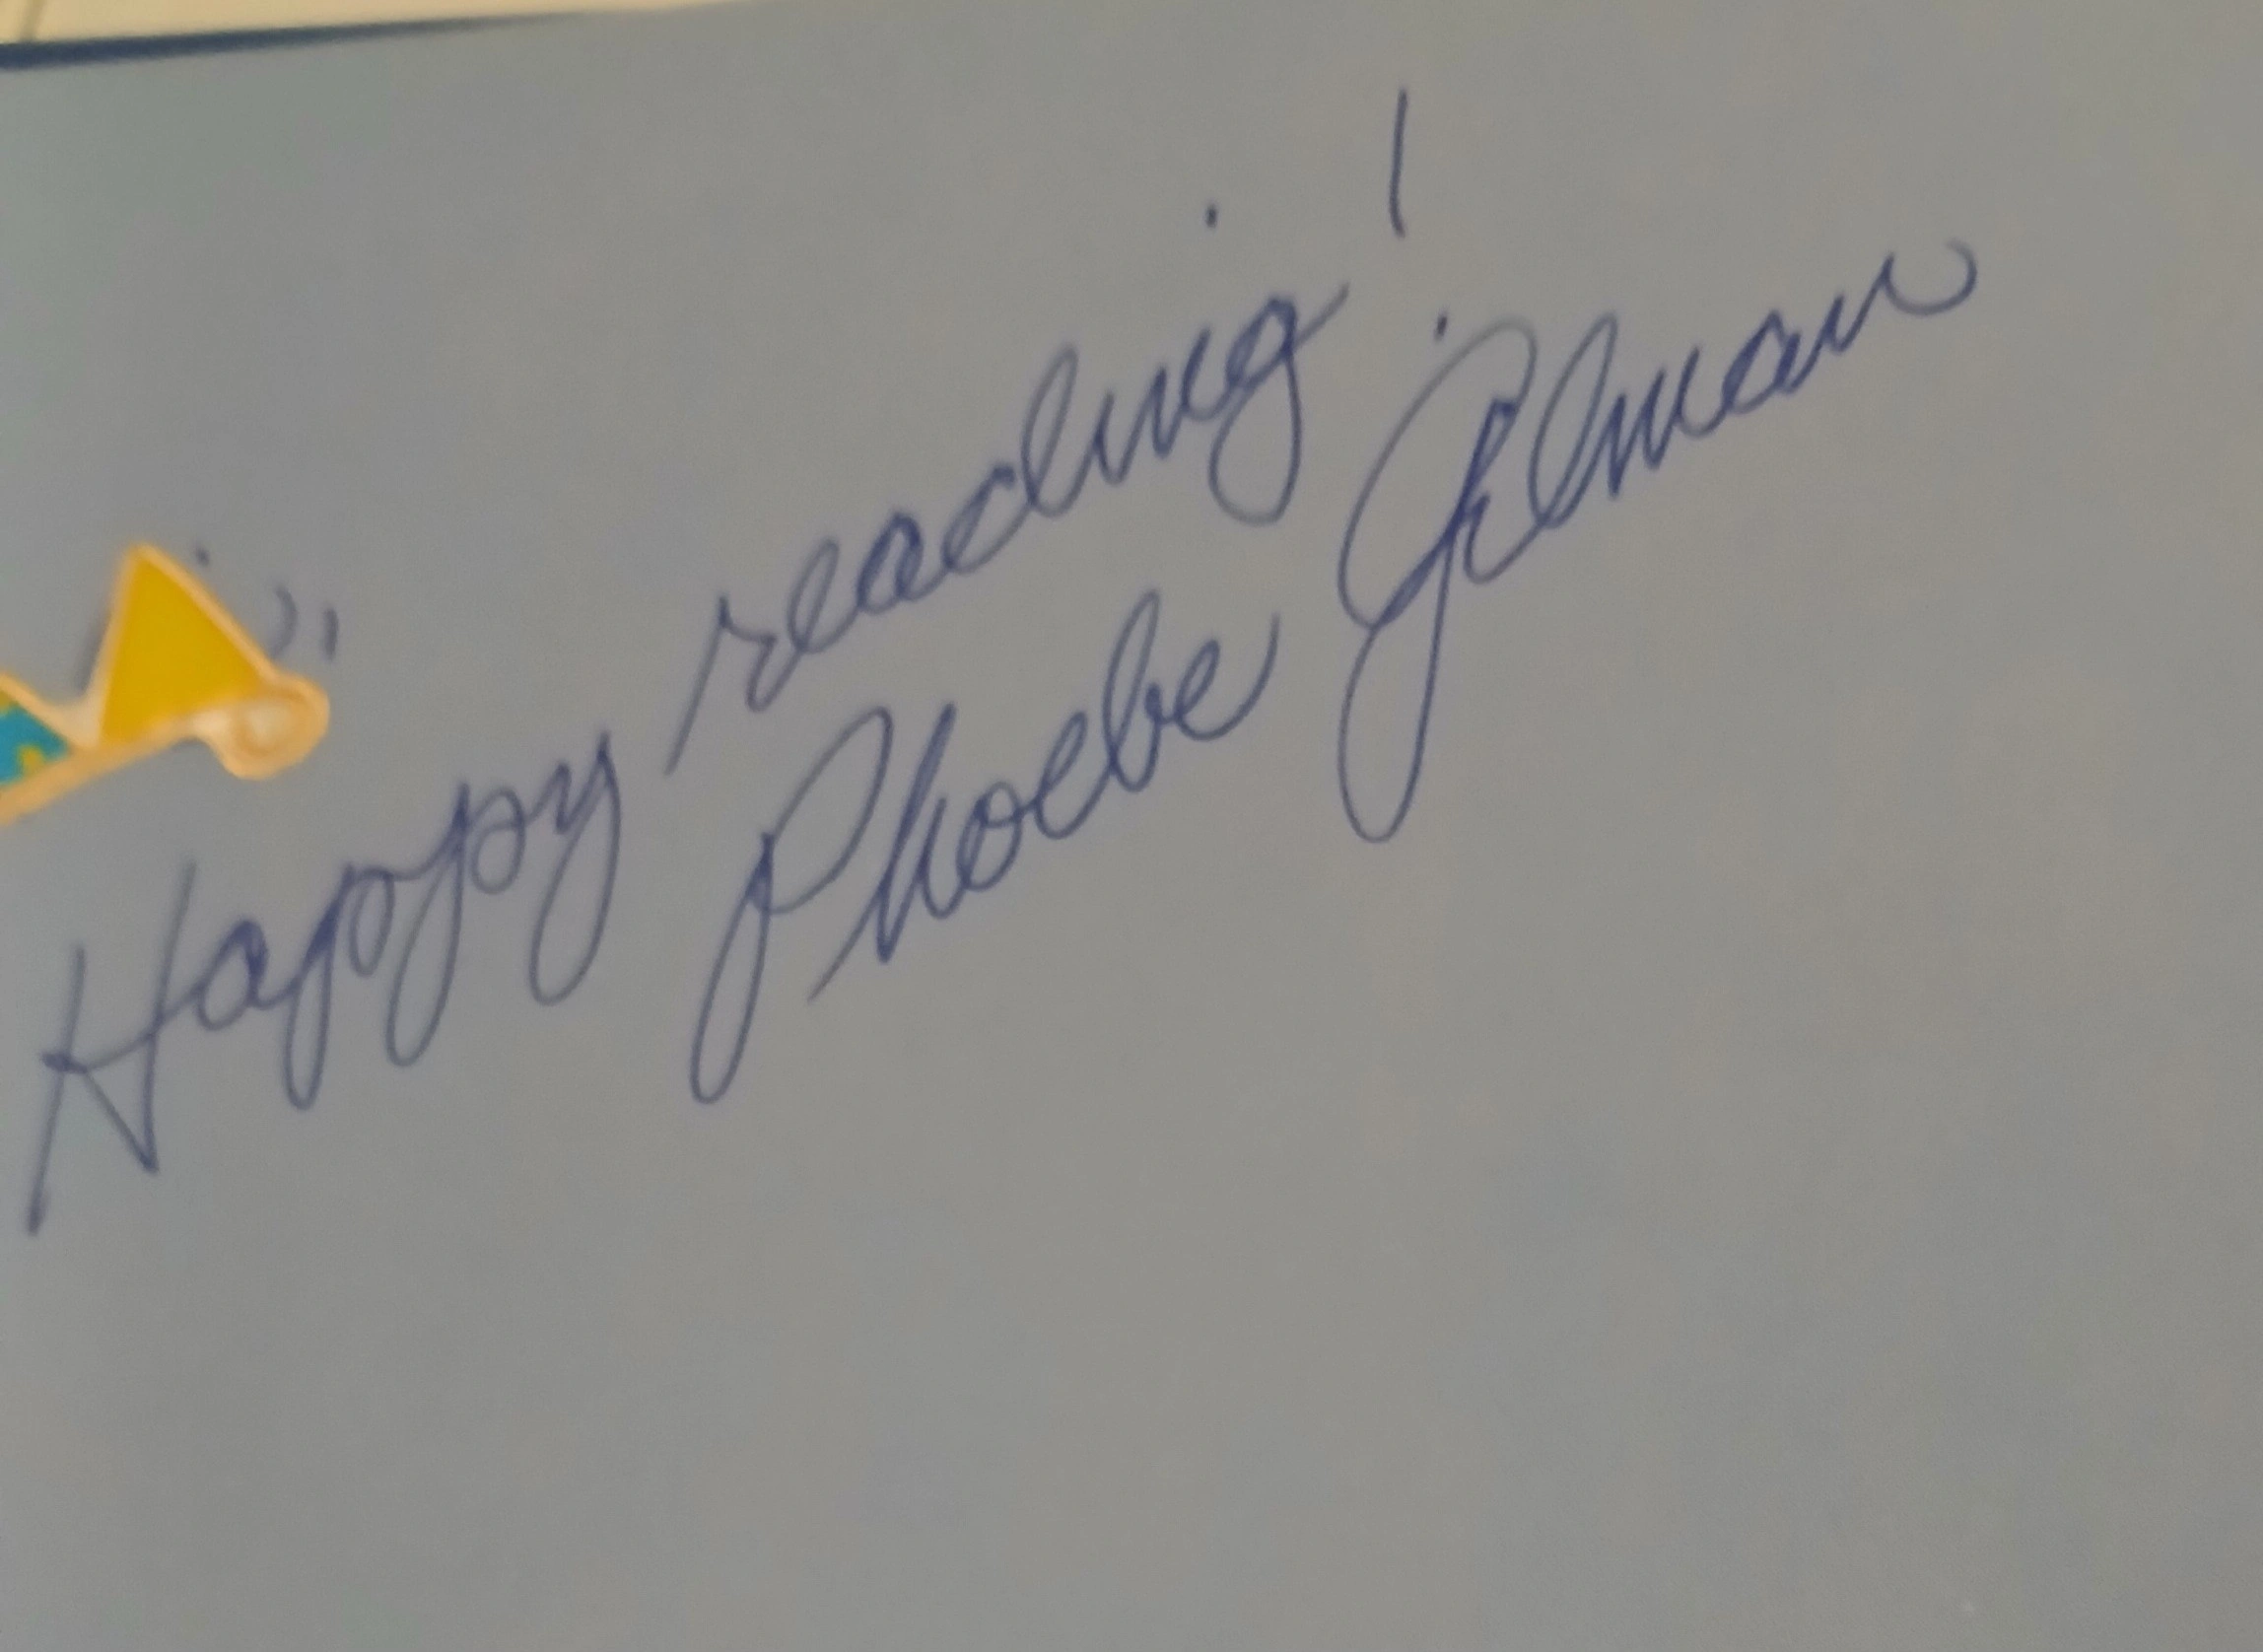 Happy reading!
Phoebe Gilman